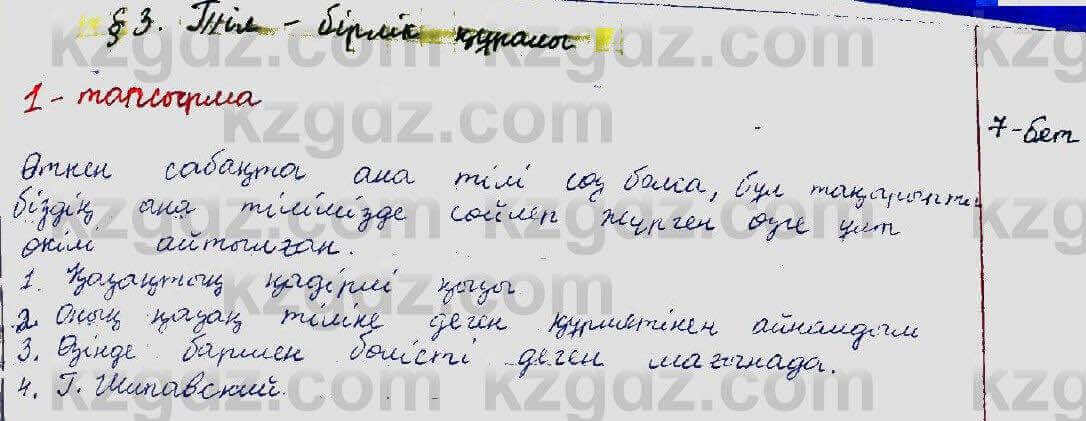 § 3. Тіл - бірлік құралы
1 - тапсырма
7-бет
Өткен сабақта ана тілі сөз болса, бұл тақырыпта
біздің ана тілімізде сөйлеп жүрген өзге ұлт
өкілі айтылған.
1. Қазақтың қадірлі қызы
2. Оның қазақ тіліне деген құрметінен айналдым
3. Өзінде бармен бөлісті деген мағынада.
4. Г. Шиповский.
kzgdz.com